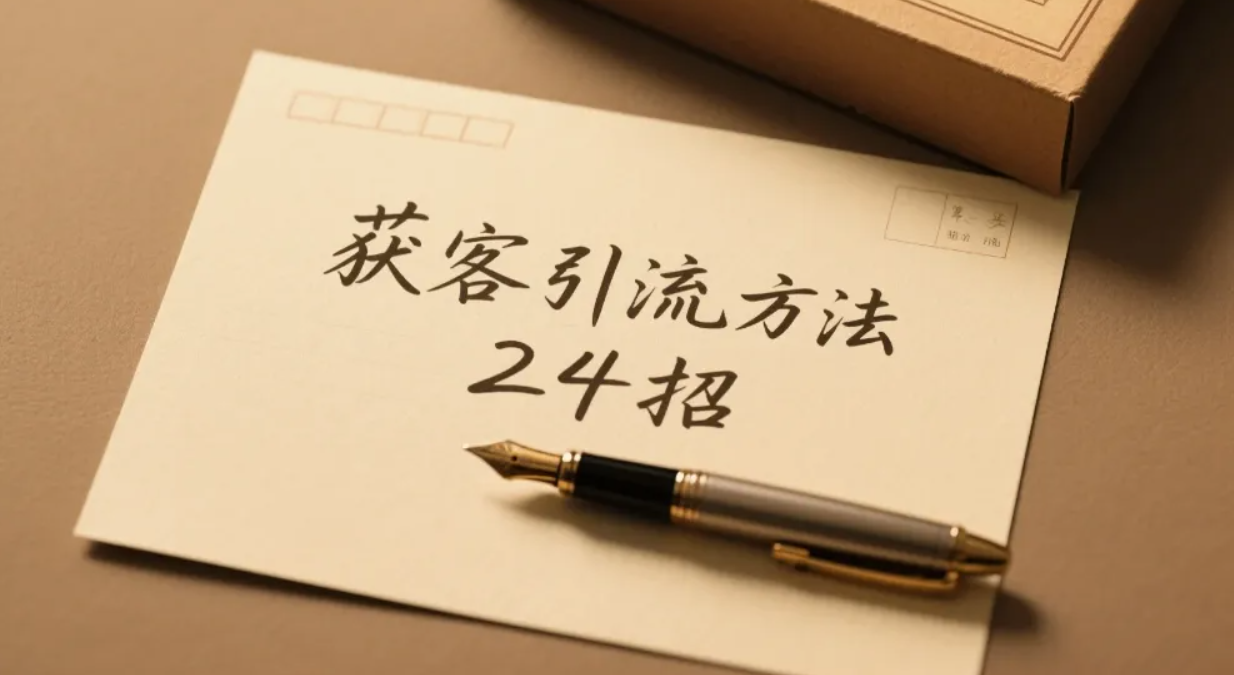 获客引流方法
24招